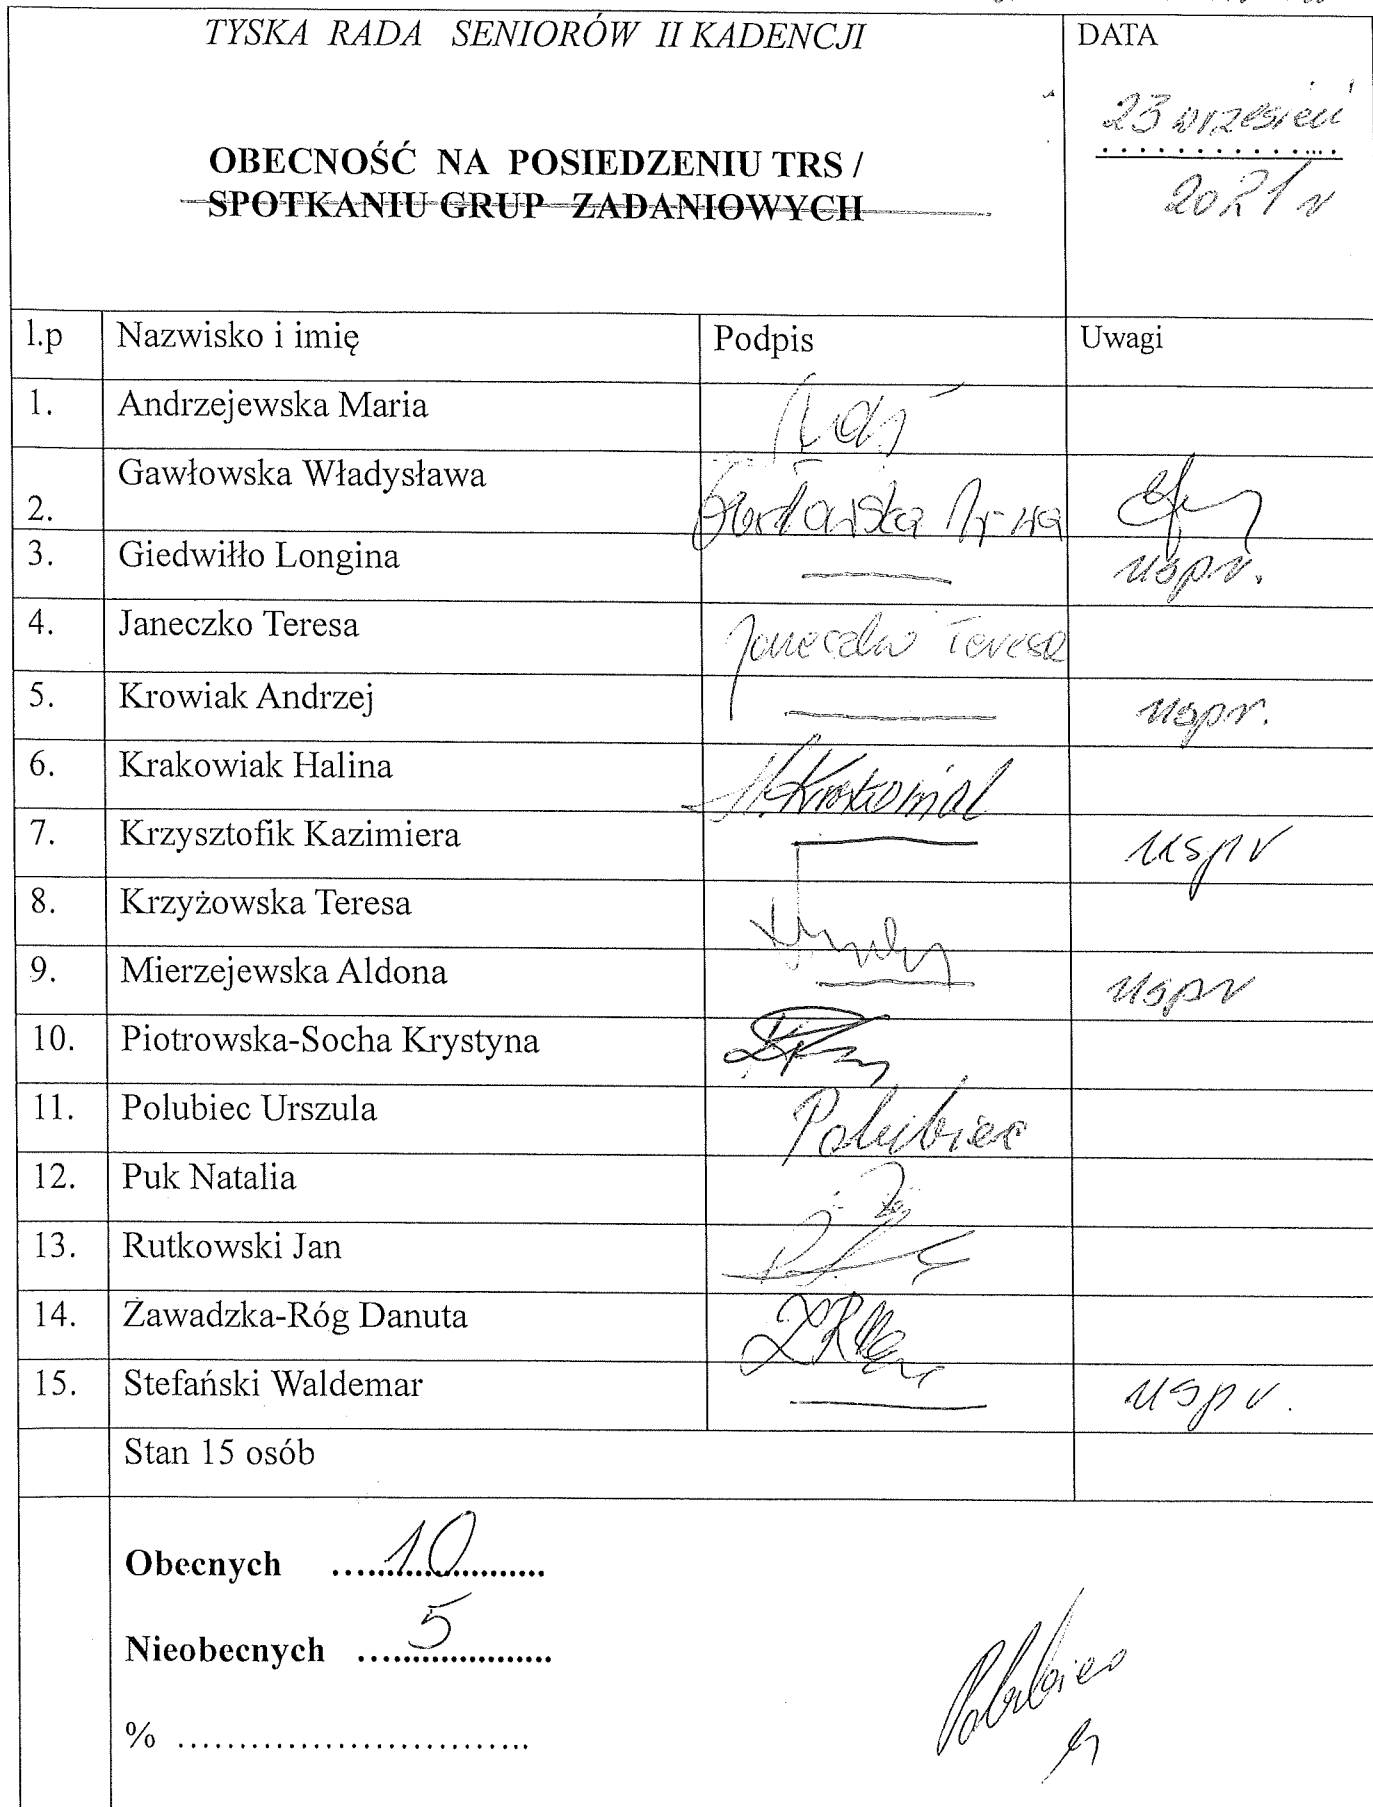 TYSKA RADA SENIORÓW II KADENCJI
DATA
23 wrzesień
2021 r
OBECNOŚĆ NA POSIEDZENIU TRS /
SPOTKANIU GRUP ZADANIOWYCH
l.p Nazwisko i imię Podpis Uwagi
1. Andrzejewska Maria
2. Gawłowska Władysława
3. Giedwiłło Longina uspr.
4. Janeczko Teresa Janeczko Teresa
5. Krowiak Andrzej uspr.
6. Krakowiak Halina H. Krakowiak
7. Krzysztofik Kazimiera uspr
8. Krzyżowska Teresa
9. Mierzejewska Aldona uspr
10. Piotrowska-Socha Krystyna
11. Polubiec Urszula Polubiec
12. Puk Natalia
13. Rutkowski Jan
14. Zawadzka-Róg Danuta
15. Stefański Waldemar uspr.
Stan 15 osób
Obecnych .....10..........
Nieobecnych ....5..........
% .............................
Polubiec